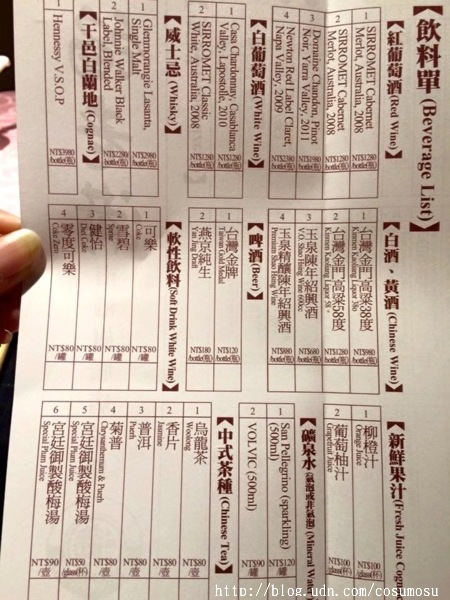 飲料單 (Beverage List)
【紅葡萄酒 (Red Wine)】
1 SIRROMET Cabernet Merlot, Australia, 2008 NT$1280 /bottle(瓶)
2 SIRROMET Cabernet Merlot, Australia, 2008 NT$1280 /bottle(瓶)
3 Domaine Chandon, Pinot Noir, Yarra Valley, 2011 NT$1980 /bottle(瓶)
4 Newton Red Label Claret, Napa Valley, 2009 NT$2380 /bottle(瓶)
【白葡萄酒 (White Wine)】
1 Casa Chardonnay, Casablanca Valley, Lapostolle, 2010 NT$1280 /bottle(瓶)
2 SIRROMET Classic White, Australia, 2008 NT$1280 /bottle(瓶)
【威士忌 (Whisky)】
1 Glenmorangie Lasanta, Single Malt NT$2980 /bottle(瓶)
2 Johnnie Walker Black Label, Blended NT$2280 /bottle(瓶)
【干邑白蘭地 (Cognac)】
1 Hennessy V.S.O.P NT$3980 /bottle(瓶)
【白酒、黃酒 (Chinese Wine)】
1 台灣金門高粱38度
Kinmen Kaoliang Liquor 38° NT$980 /bottle(瓶)
2 台灣金門高粱58度
Kinmen Kaoliang Liquor 58° NT$1280 /bottle(瓶)
3 玉泉陳年紹興酒
V.O. Shao Hsing Wine 600cc NT$680 /bottle(瓶)
4 玉泉精釀陳年紹興酒
Premium Shao Hsing Wine NT$880 /bottle(瓶)
【啤酒 (Beer)】
1 台灣金牌
Taiwan Gold Medal NT$120 /bottle(瓶)
2 燕京純生
Yan Jing Draft NT$180 /bottle(瓶)
【軟性飲料 (Soft Drink White Wine)】
1 可樂
Coke NT$80 /罐
2 雪碧
Sprite NT$80 /罐
3 健怡
Diet Coke NT$80 /罐
4 零度可樂
Coke Zero NT$80 /罐
【新鮮果汁 (Fresh Juice Cogn
1 柳橙汁
Orange Juice NT$100 /glass(杯)
2 葡萄柚汁
Grapefruit Juice NT$100 /glass(杯)
【礦泉水 氣泡或非氣泡 (Mineral Wate
1 San Pellegrino (sparkling) (500ml) NT$120 /罐
2 VOLVIC (500ml) NT$90 /罐
【中式茶種 (Chinese Tea)】
1 烏龍茶
Woolong NT$80 /壺
2 香片
Jasmine NT$80 /壺
3 普洱
Puerh NT$80 /壺
4 菊普
Chrysanthemum & Puerh NT$80 /壺
5 宮廷御製酸梅湯
Special Plum Juice NT$50 /glass(杯)
6 宮廷御製酸梅湯
Special Plum Juice NT$90 /壺
http://blog.udn.com/cosumosu